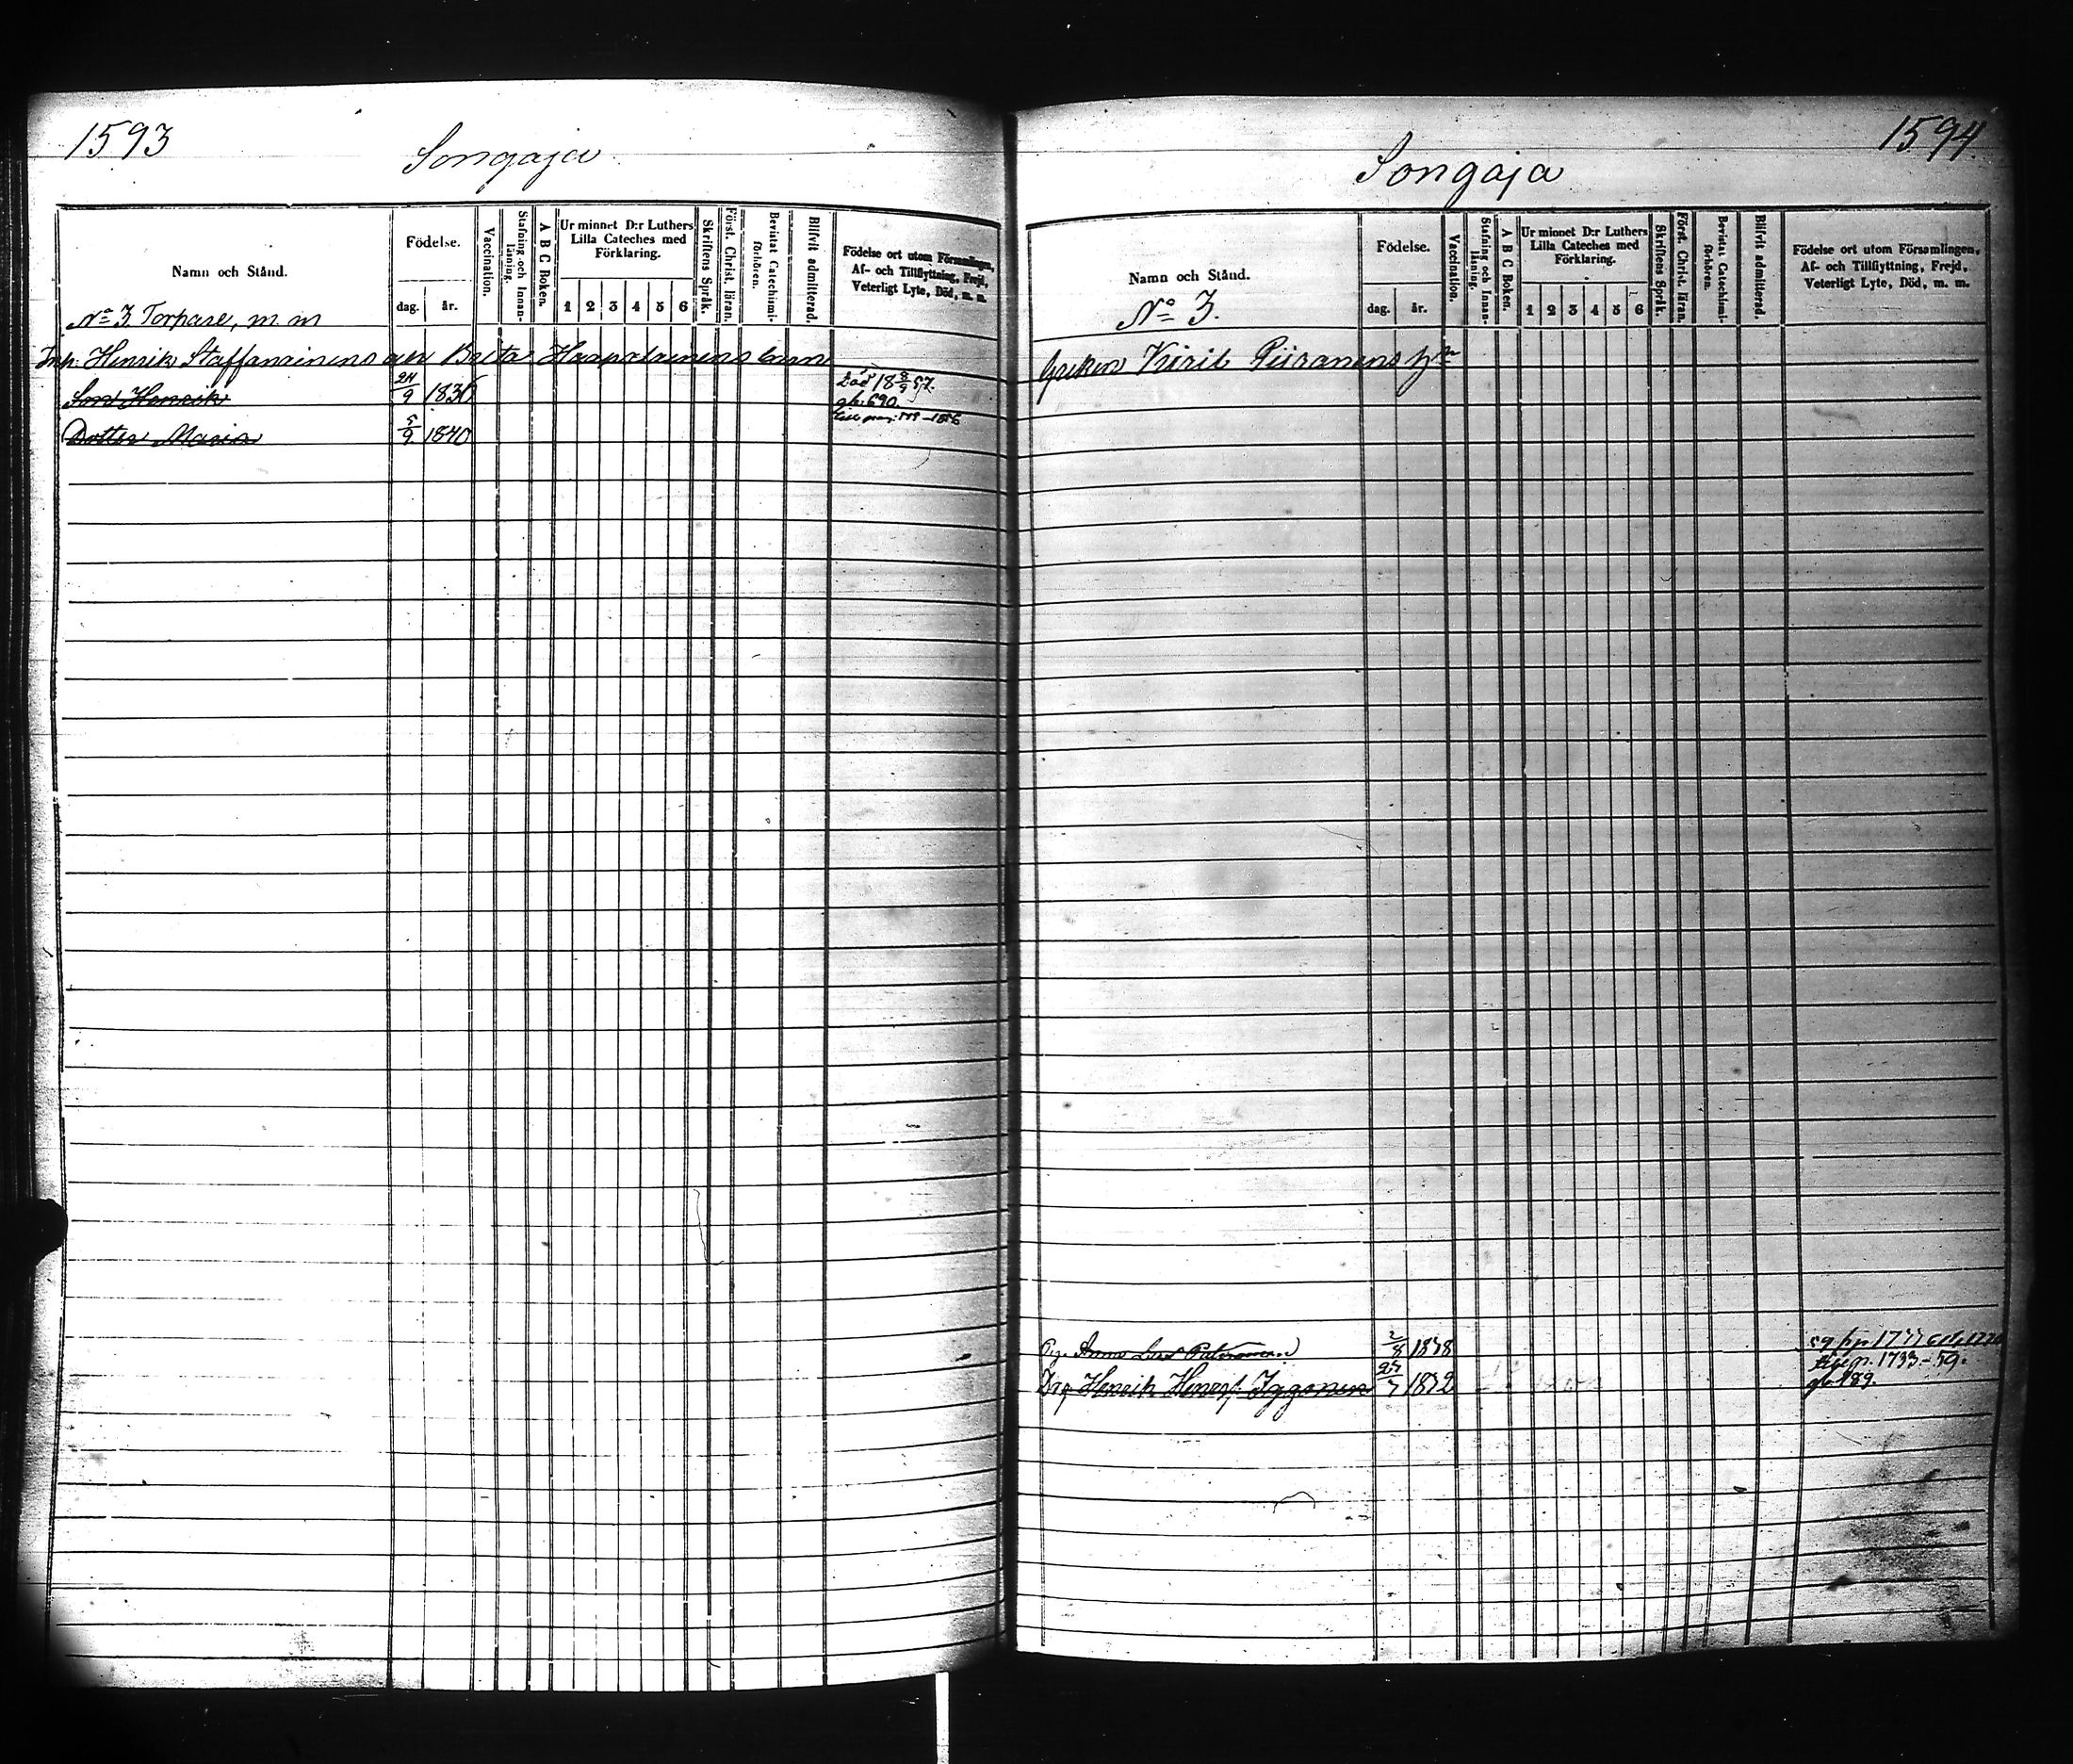 1593
Songaja
Namn och Stånd.
Födelse.
dag.
år.
Vaccination.
Stafning och Innanläsning.
A B C Boken.
Ur minnet D:r Luthers
Lilla Cateches med
Förklaring.
1 2 3 4 5 6
Skriftens Språk.
Först. Christ. läran.
Bevistat Catechismiförhören.
Blifvit admitterad.
Födelse ort utom Församlingen,
Af- och Tillflyttning, Frejd,
Veterligt Lyte, Död, m. m.
No 3. Torpare, m. m
Inh. Henrik Staffanainens och Brita Haapalainens barn
Son Henrik 24/9 1836 Död 18 8/9 57.
gb. 690.
Dotter Maria 5/9 1840
1594
Songaja
Namn och Stånd.
Födelse.
dag.
år.
Vaccination.
Stafning och Innanläsning.
A B C Boken.
Ur minnet D:r Luthers
Lilla Cateches med
Förklaring.
1 2 3 4 5 6
Skriftens Språk.
Först. Christ. läran.
Bevistat Catechismiförhören.
Blifvit admitterad.
Födelse ort utom Församlingen,
Af- och Tillflyttning, Frejd,
Veterligt Lyte, Död, m. m.
No 3.
Greken Kiril Piiranens
Pig. Anna 2/8 1838
Drg Henrik Henrsf. Iggonen 27/7 1832
p. 1733-59.
gb. 189.